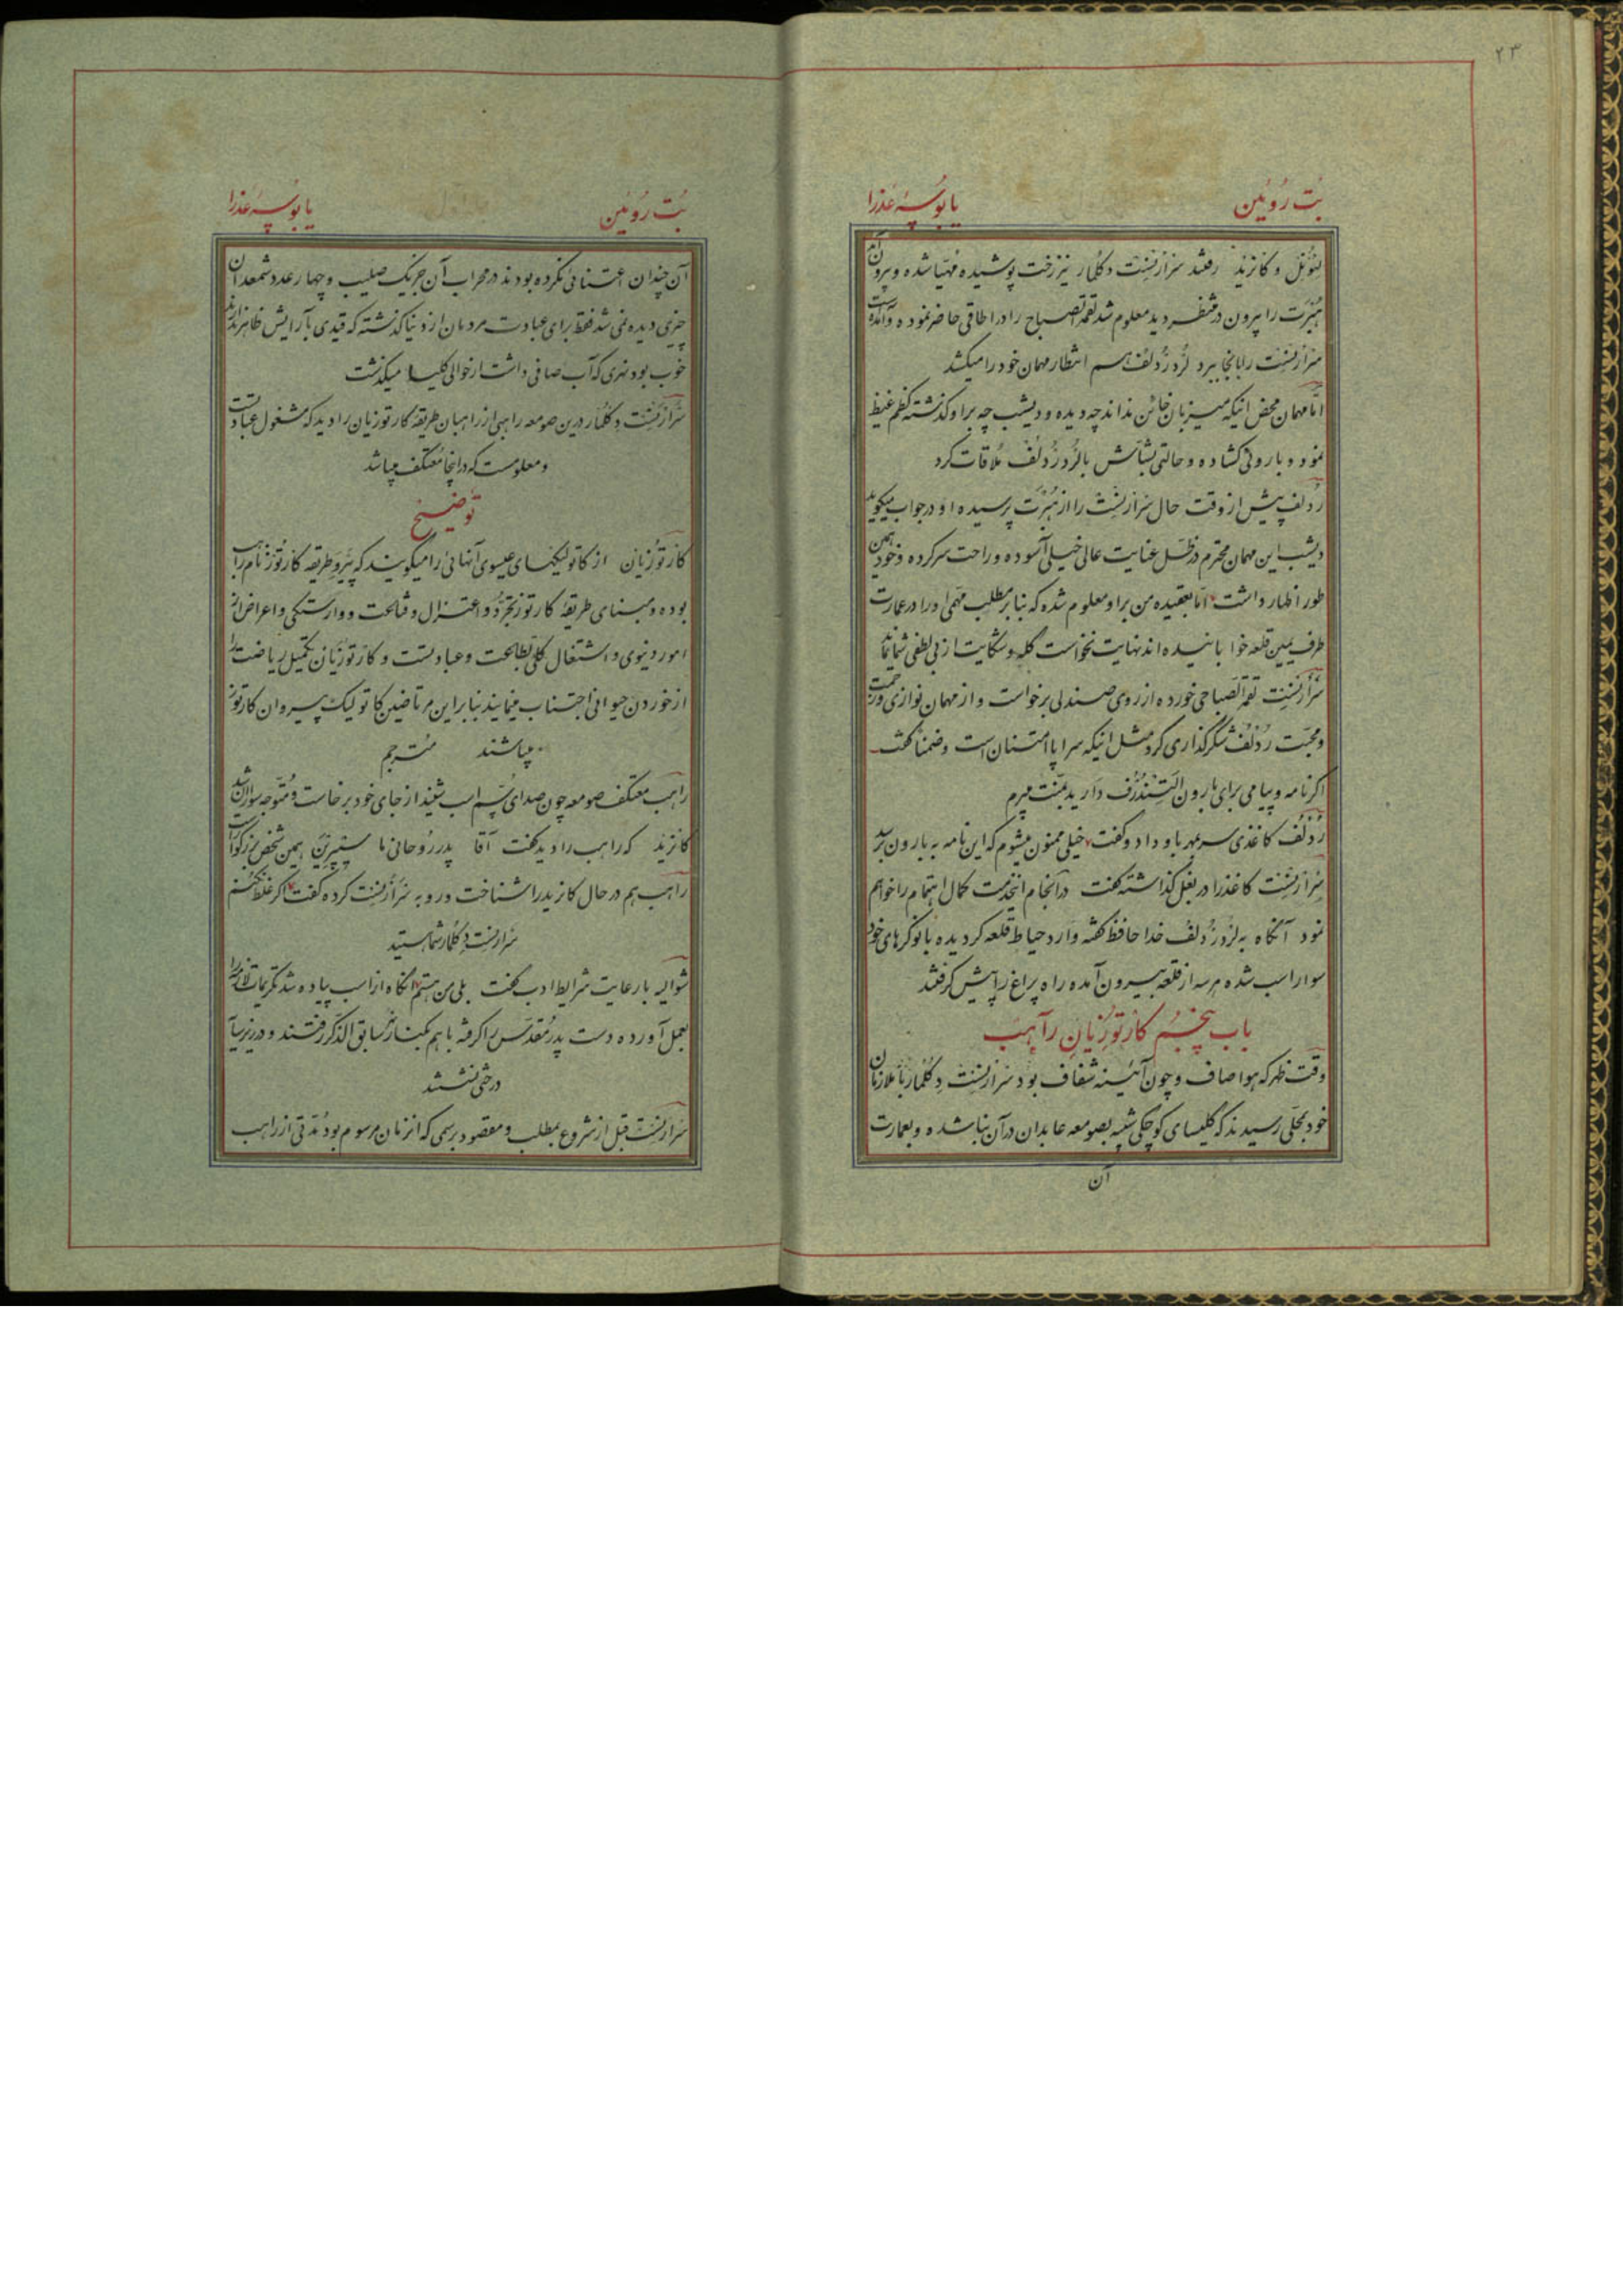 ۲۳
بُت رُوئین یا بُوسهٔ عَذرا
لئونل و کانرید رفتند سرارنست دکلمار نیز رخت پوشیده مهیّا شده و بیرون آمد
هبرت را بیرون در منتظر دید معلوم شد لقمة الصباح را در اطاقی حاضر نموده و آمده است
سرارنست را بانجا ببرد لرد ردلف هم انتظار مهمان خود را میکشد
امّا مهمان محض اینکه میزبان خائن نداند چه دیده و دیشب چه بر او گذشته کظم غیظ
نمود و با روئی گشاده و حالتی بشاش با لرد ردلف ملاقات کرد
ردلف پیش از وقت حال سرارنست را از هبرت پرسیده او در جواب میگوید
دیشب این مهمان محترم در ظل عنایت عالی خیلی آسوده و راحت سرکرده و خود همین
طور اظهار داشت امّا بعقیده من بر او معلوم شده که بنا بر مطلب مهمّی او را در عمارت
طرف یمین قلعه خوابانیده‌اند نهایت نخواست گله و شکایت از بی لطفی شما نماید
سرارنست لقمة الصباحی خورده از روی صندلی برخاست و از مهمان نوازی و زحمت
و محبّت ردلف شکرگذاری کرد مثل اینکه سراپا امتنان است و ضمناً گفت
اگر نامه و پیامی برای بارون التندرف دارید بمنّت میبرم
ردلف کاغذی سر بمهر باو داد و گفت خیلی ممنون میشوم که این نامه به بارون برسد
سرارنست کاغذ را در بغل گذاشته گفت در انجام اینخدمت کمال اهتمام را خواهم
نمود آنگاه به لرد ردلف خدا حافظ گفته وارد حیاط قلعه گردیده با نوکرهای خود
سوار اسب شده هر سه از قلعه بیرون آمده راه پراغ را پیش گرفتند
باب پنجم کارتوزیان راهب
وقت ظهر که هوا صاف و چون آئینه شفاف بود سرارنست دکلمار با ملازمان
خود بمحلّی رسیدند که کلیسای کوچکی شبیه بصومعه عابدان در آن بنا شده و بعمارت
آن
بُت رُوئین یا بُوسهٔ عَذرا
آن چندان اعتنائی نکرده بودند در محراب آن جز یک صلیب و چهار عدد شمعدان
چیزی دیده نمی شد فقط برای عبادت مردمان از دنیا گذشته که قیدی بآرایش ظاهر ندارند
خوب بود نهری که آب صافی داشت از حوالی کلیسا میگذشت
سرارنست دکلمار درین صومعه راهبی از راهبان طریقهٔ کارتوزیان را دید که مشغول عبادتست
و معلومست که در انجا معتکف میباشد
توضیح
کارتوزیان از کاتولیکهای عیسوی آنهائی را میگویند که پیرو طریقه کارتوز نام راهب
بوده و مبنای طریقهٔ کارتوز تجرّد و اعتزال و قناعت و وارستگی و اعراض از
امور دنیوی و اشتغال کلّی بطاعت و عبادتست و کارتوزیان تکمیل ریاضت را
از خوردن حیوانی اجتناب مینمایند بنا بر این مرتاضین کاتولیک پیروان کارتوز
میباشند مترجم
راهب معتکف صومعه چون صدای سُم اسب شنید از جای خود برخاست و متوجه سواران شد
کانرید که راهب را دید گفت آقا پدر روحانی ما سیپرین همین شخص بزرگوار است
راهب هم در حال کانرید را شناخت و رو به سرارنست کرده گفت اگر غلط نکنم
سرارنست دکلمار شما هستید
شوالیه با رعایت شرایط ادب گفت بلی من هستم آنگاه از اسب پیاده شد تکریمات لازمه را
بعمل آورده دست پدر مقدّس را گرفته با هم بکنار نهر سابق الذکر رفتند و در زیر سایهٔ
درختی نشستند
سرارنست قبل از شروع بمطلب و مقصود برسمی که آنزمان مرسوم بود مدّتی از راهب